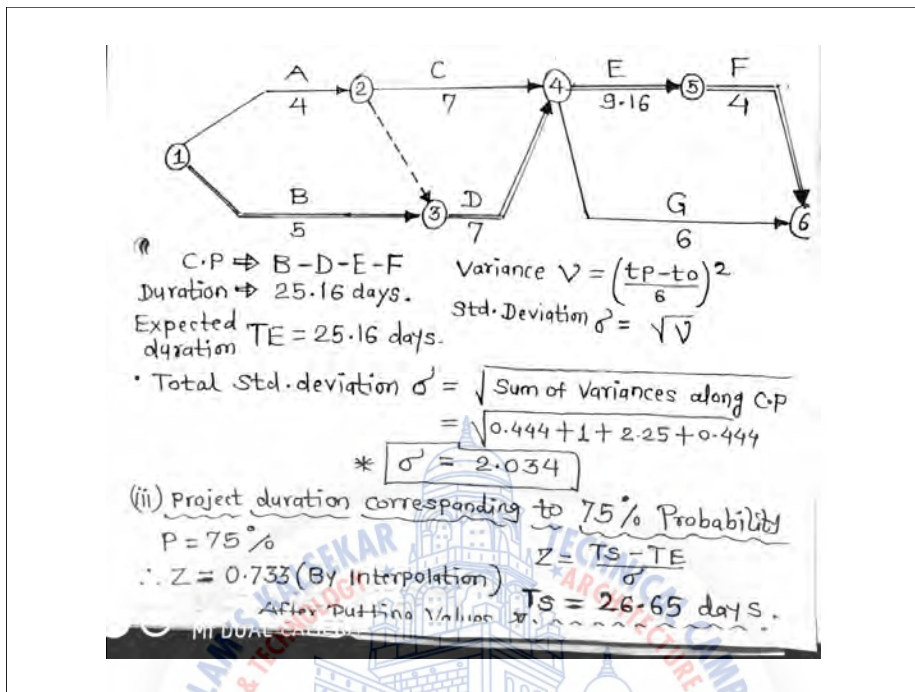 A C E F
② ④ ⑤
4 7 9.16 4
①
B ③ D G ⑥
5 7 6
C.P ⇒ B-D-E-F
Duration ⇒ 25.16 days.
Expected duration TE = 25.16 days.
Variance V = (tp-to/6)²
Std. Deviation σ = √V
• Total Std. deviation σ = √Sum of Variances along C.P
= √0.444+1+2.25+0.444
* σ = 2.034
(ii) Project duration corresponding to 75% Probability
P = 75%
∴ Z = 0.733 (By Interpolation)
Z = TS-TE/σ
After Putting Values
TS = 26.65 days.
MI DUAL CAMERA
KALSEKAR TECHNICAL
& TECHNOLOGY * ARCHITECTURE